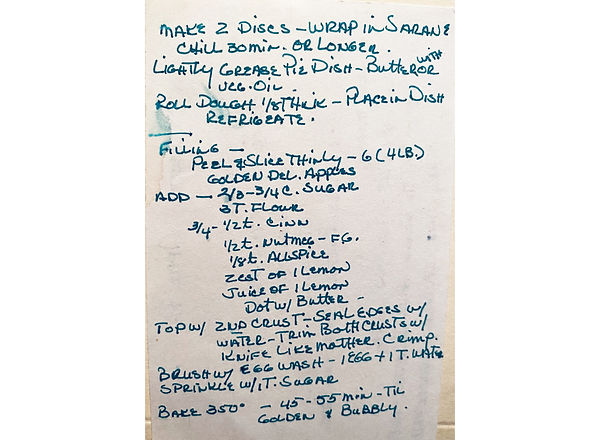 MAKE 2 DISCS - WRAP IN SARAN &
CHILL 30 MIN. OR LONGER.
LIGHTLY GREASE PIE DISH - BUTTER OR WITH
VEG. OIL.
ROLL DOUGH 1/8 THICK - PLACE IN DISH
REFRIGEATE.
FILLING -
PEEL & SLICE THINLY - 6 (4 LB.)
GOLDEN DEL. APPLES
ADD - 2/3 - 3/4 C. SUGAR
3 T. FLOUR
3/4 - 1/2 t. CINN
1/2 t. NUTMEG - FG.
1/8 t. ALLSPICE
ZEST OF 1 LEMON
JUICE OF 1 LEMON
DOT W/ BUTTER -
TOP W/ 2ND CRUST - SEAL EDGES W/
WATER - TRIM BOTH CRUSTS W/
KNIFE LIKE MOTHER. CRIMP.
BRUSH W/ EGG WASH - 1 EGG + 1 T. WATER
SPRINKLE W/ 1 T. SUGAR
BAKE 350° - 45 - 55 MIN - TIL
GOLDEN & BUBBLY.